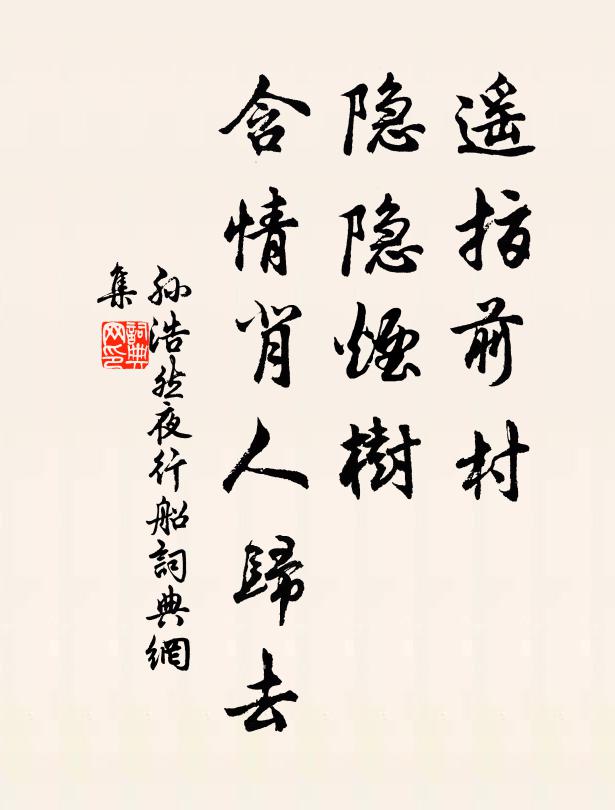 遥指前村
隐隐煙樹
含情背人歸去
孙浩然夜行船詞典網
集
詞典网印